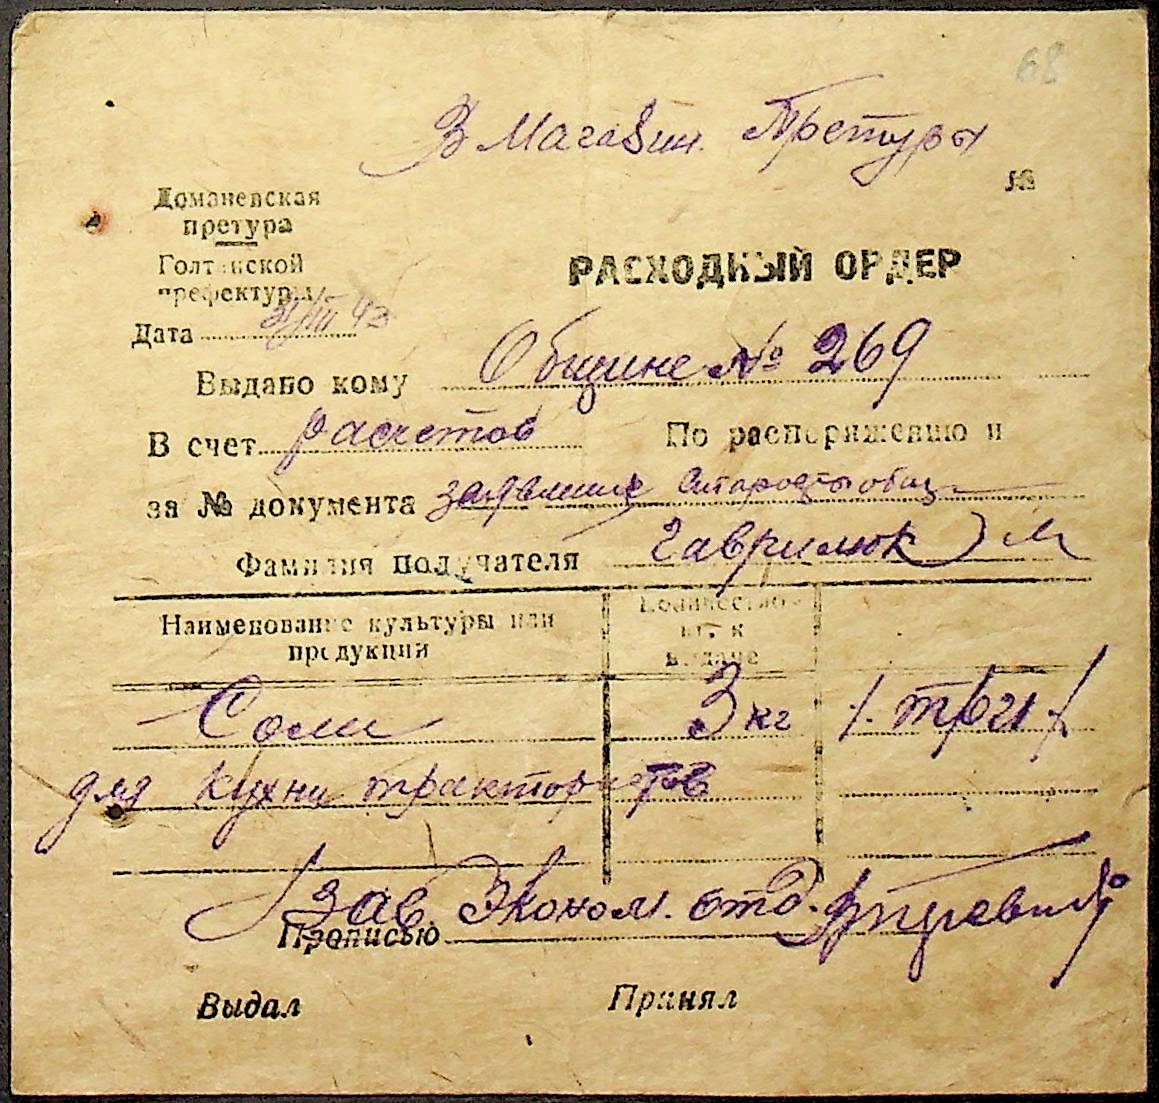 68
З Магазин. Претуры
№
Доманевская
претура
Голтянской
префектуры
РАСХОДНЫЙ ОРДЕР
Дата 31/III 43
Выдано кому Общине № 269
В счет расчетов По распоряжению и
за № документа заявление Старосты общ.
Фамилия получателя Гаврилюк М
Наименование культуры или продукции
Количество кг. к выдаче
Соли 3 кг /. три ./
для кухни трактористов
Зав. Эконом. отд.
Прописью
Выдал Принял